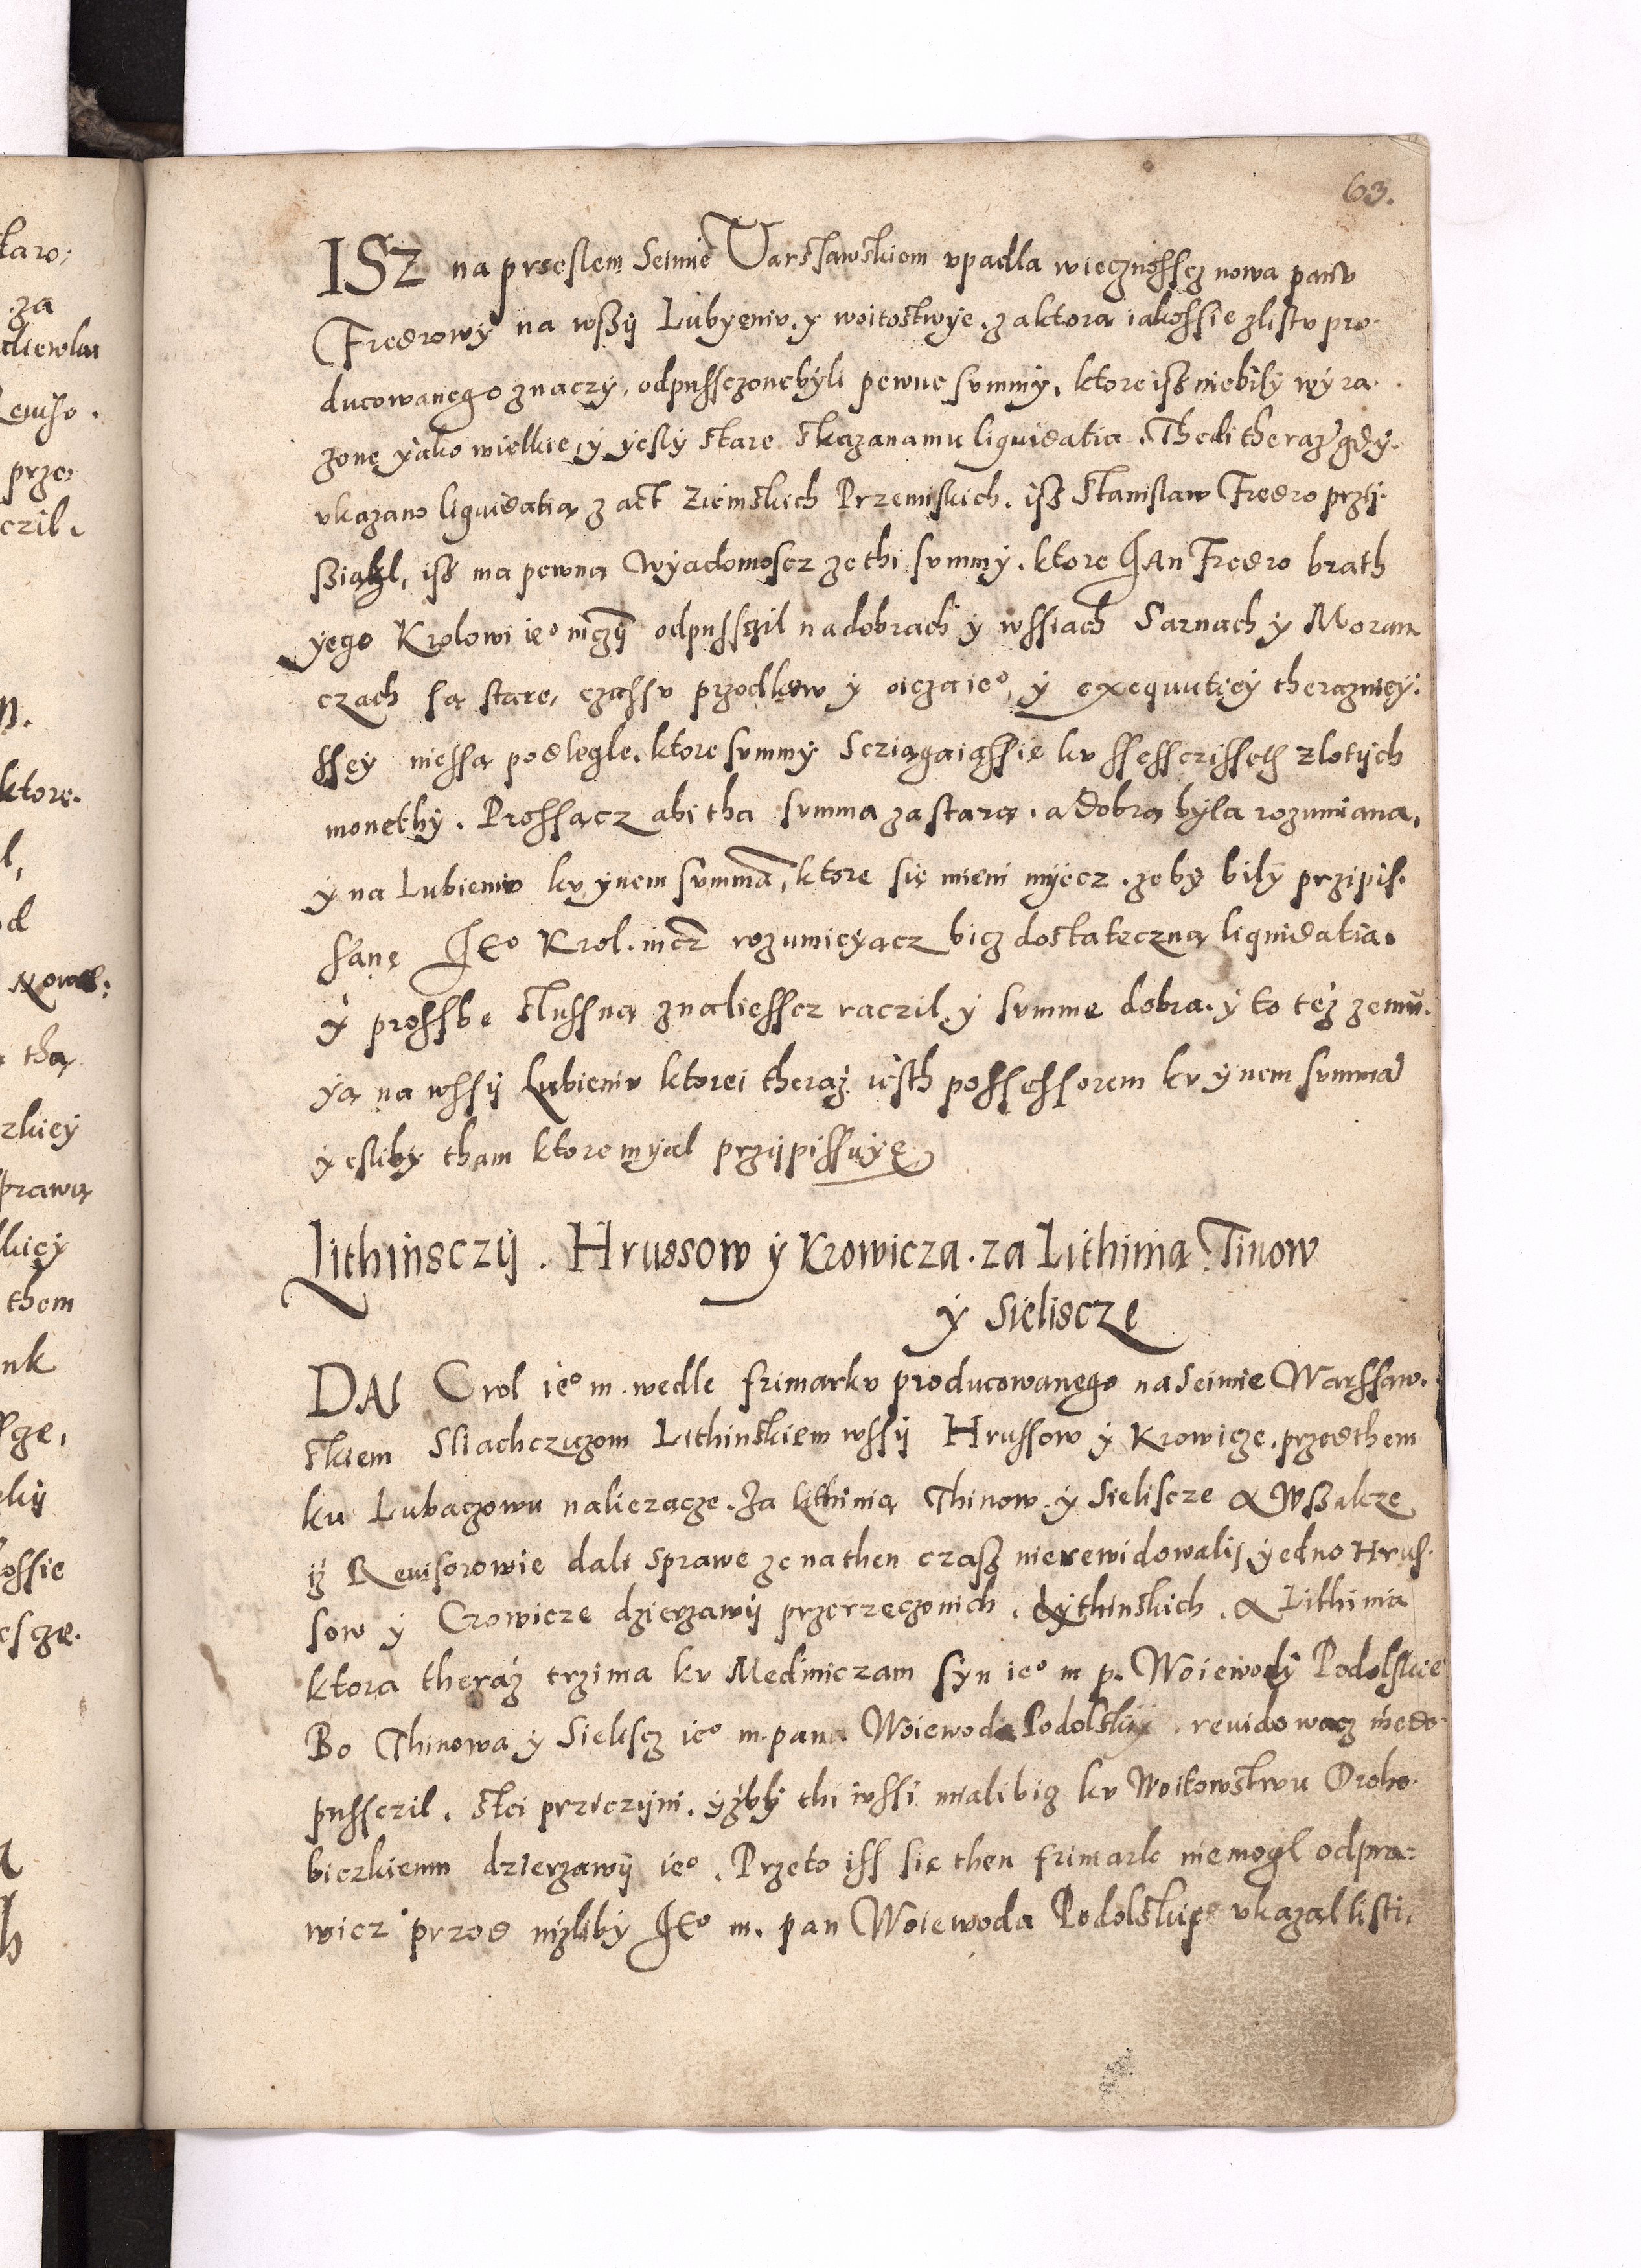 63.
ISZ na przeslem Seimie Varssawskiem vpadla wiecznosscz nowa panv
Fredrowy na wßij Lubyeniv. y woitostwye. za ktora iakossie zlistv pro-
ducowanego znaczy. odpussczone byli pewne svmmy. ktore isz nie byly wyra-
zone yako wielkie, y yesly stare skazana mu liquidatia. Thedi theraz gdy
vkazano liquidatią z act Ziemskich Przemiskich. isz Stanislaw Fredro przy-
isz ma pewna wyadomoscz ze thi svmmy. ktore Jan Fredro brath
yego Krolowi ieo mczij odpussczil na dobrach y wssiach Sarnach y Moran
czach są stare, czassv przodkow y oicza ieo, y exequutiey therazniey-
ssey niessą podlegle. ktore svmmy Scziągaiąssie kv ssessczisseth zlotych
monethy. Prossącz abi tha svmma za starą. a dobrą byla rozumiana.
y na Lubieniv kv ynem svmmą, ktore się mieni myecz. zeby bily przipis-
sanę Jeo Krol. mcz rozumieyącz bicz dostateczną liquidatią.
y prossbę slussną znaliesscz raczil y svmmę dobrą. y to też zemv-
yą na wssij Lubieniv ktorei theraz iesth possessorem kv ynem svmmą
yesliby tham ktore myal przijpissuyę
Lithinsczij. Hrussow y Krowicza. za Lithinią Tinow
y Sieliscze
DAŁ Crol ieo m. wedle frimarkv producowanego na Seimie Warssaw-
skiem Sliachczigom Lithinskiem wssij Hrussow y Krowicze. przedthem
ku Lubaczowu naliezącze. Za Lithinią Thinow. y Sieliscze A Wßakze
iż Reuisorowie dali sprawę ze na then czasz nierewidowalij, yedno Hrus-
sow y Crowicze dzierzawij przerzeczonich. Lythinskich. A Lithinią
ktora theraz trzima kv Medniczam syn ieo m p. Woiewody Podolskie
Bo Thinowa y Sielisz ieo m. pana Woiewoda Podolskiy. revidowacz niedo-
pussczil. stei prziczyni. yżby thi wssi mialibicz kv Woitowstwu Droho-
biczkiemu dzierzawij ieo. Przeto iss sie then frimark niemogl odpra-
wicz przed nizliby Jeo m. pan Woiewoda Podolskij vkazal listi.